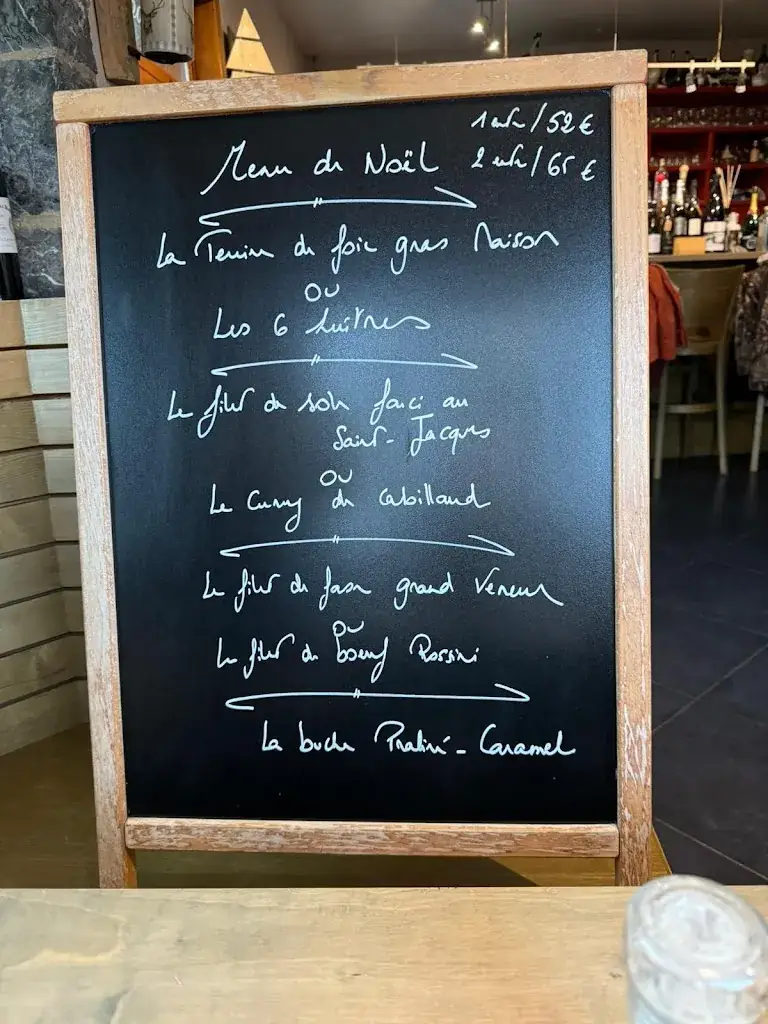 1 entr / 52 €
Menu de Noël 2 entr / 65 €
La Terrine de foie gras Maison
OU
Les 6 huitres
Le filet de sole farci au
Saint-Jacques
OU
Le Curry de cabillaud
Le filet de faon grand Veneur
OU
Le filet de boeuf Rossini
La buche Praliné - Caramel